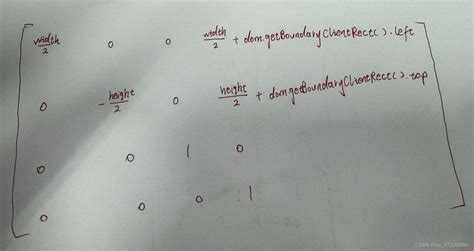 width/2 0 0 width/2 + dom.getBoundaryClientRect().left
0 -height/2 0 height/2 + dom.getBoundaryClientRect().top
0 0 1 0
0 0 0 1